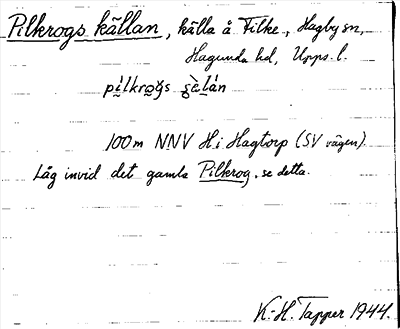 Pilkrogs källan, källa å Filke, Hagby sn,
Hagunda hd, Upps. l.
100 m NNV H. i Hagtorp (SV vägen).
Låg invid det gamla Pilkrog, se detta.
K.-H. Tapper 1944.